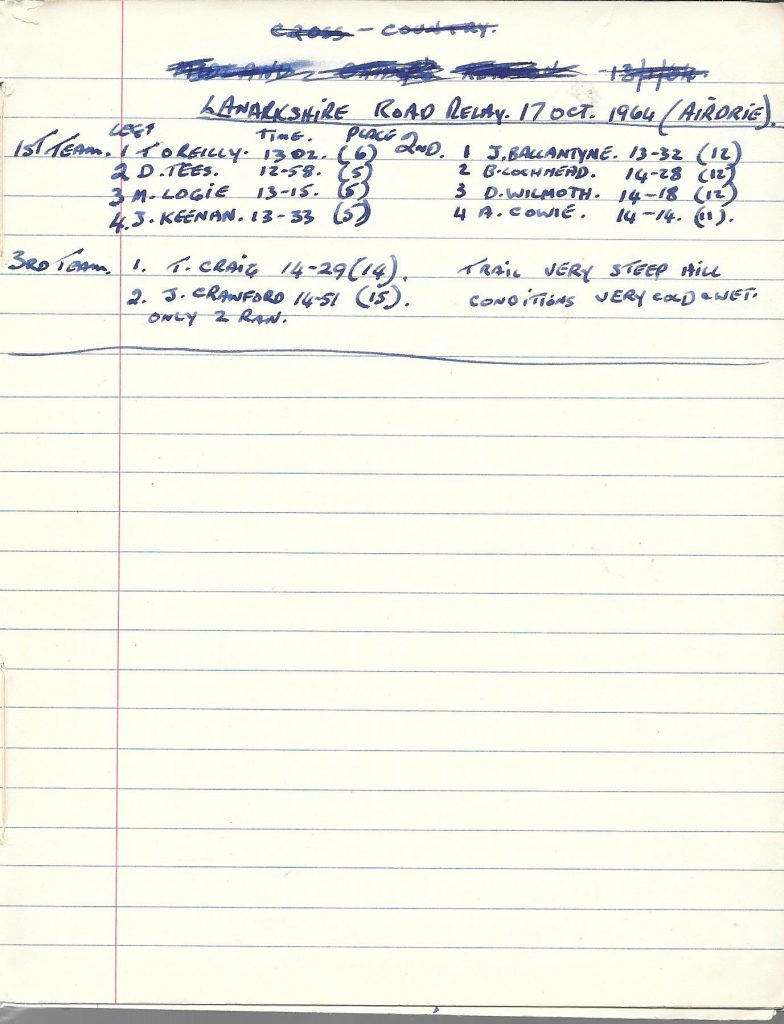 CROSS - COUNTRY.
LANARKSHIRE ROAD RELAY. 17 OCT. 1964 (AIRDRIE).
LEG TIME. PLACE
1ST TEAM. 1 T O REILLY. 13 02. (6) 2ND. 1 J. BALLANTYNE. 13-32 (12)
2 D. TEES. 12-58. (5) 2 B. LOCHHEAD. 14-28 (12)
3 M. LOGIE 13-15. (5) 3 D. WILMOTH. 14-18 (12)
4. J. KEENAN. 13-33 (5) 4 A. COWIE. 14-14. (11).
3RD TEAM. 1. T. CRAIG 14-29 (14). TRAIL VERY STEEP HILL
2. J. CRAWFORD 14-51 (15). CONDITIONS VERY COLD & WET.
ONLY 2 RAN.